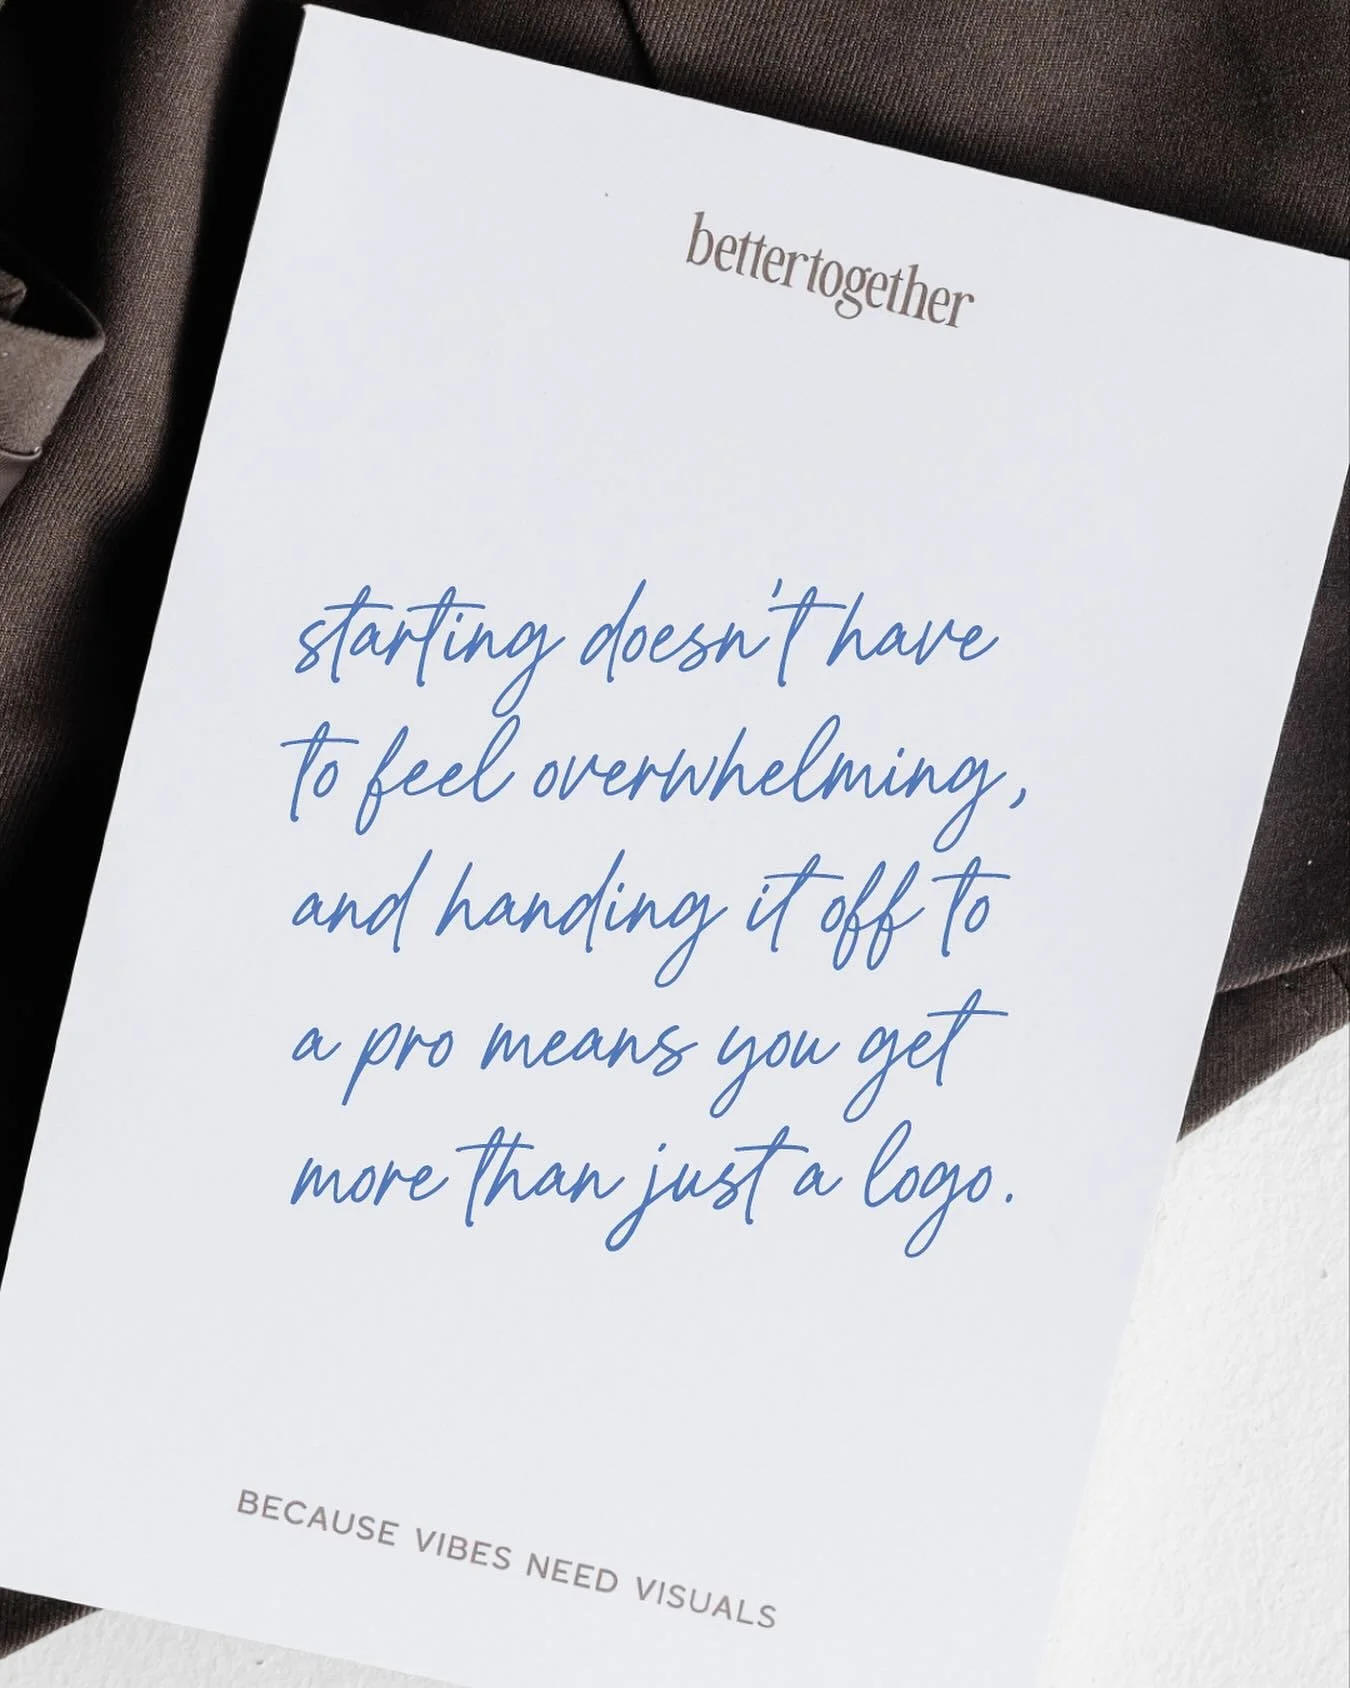 bettertogether
starting doesn't have
to feel overwhelming,
and handing it off to
a pro means you get
more than just a logo.
BECAUSE VIBES NEED VISUALS